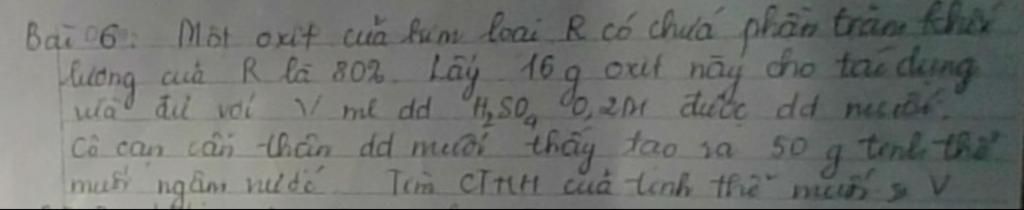 Bài 06: Một oxit của kim loại R có chứa phần trăm khối
lượng của R là 80%. Lấy 16 g oxit này cho tác dụng
vừa đủ với V ml dd H₂SO₄ 0,2M được dd muối.
Cô cạn cẩn thận dd muối thấy tạo ra 50 g tinh thể
muối ngậm nước. Tìm CTHH của tinh thể muối, V